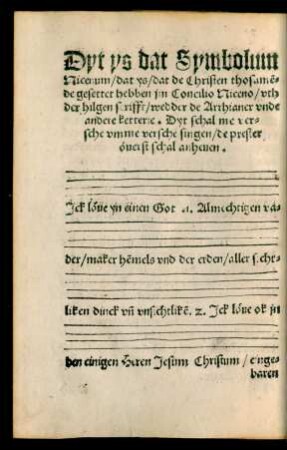 Dyt ys dat Symbolum
Nicenum/dat ys/dat de Christen thosamē-
de gesettet hebben jm Concilio Niceno/vth
der hilgen schrifft/wedder de Arrhianer vnde
andere ketterie. Dyt schal me ver-
sche vmme versche singen/de prester
överst schal anheuen.
Jck löue yn einen Got a. Almechtigen va-
der/maker hēmels vnd der erden/aller sicht-
liken dinck vn̄ vnsichtlikē. 2. Jck löue ok jn
den einigen Heren Jesum Christum/einge-
baren